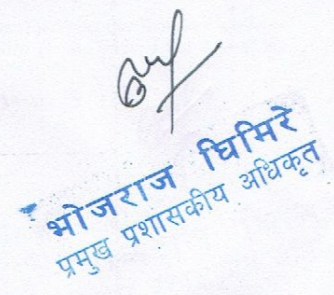 भोजराज घिमिरे
प्रमुख प्रशासकीय अधिकृत